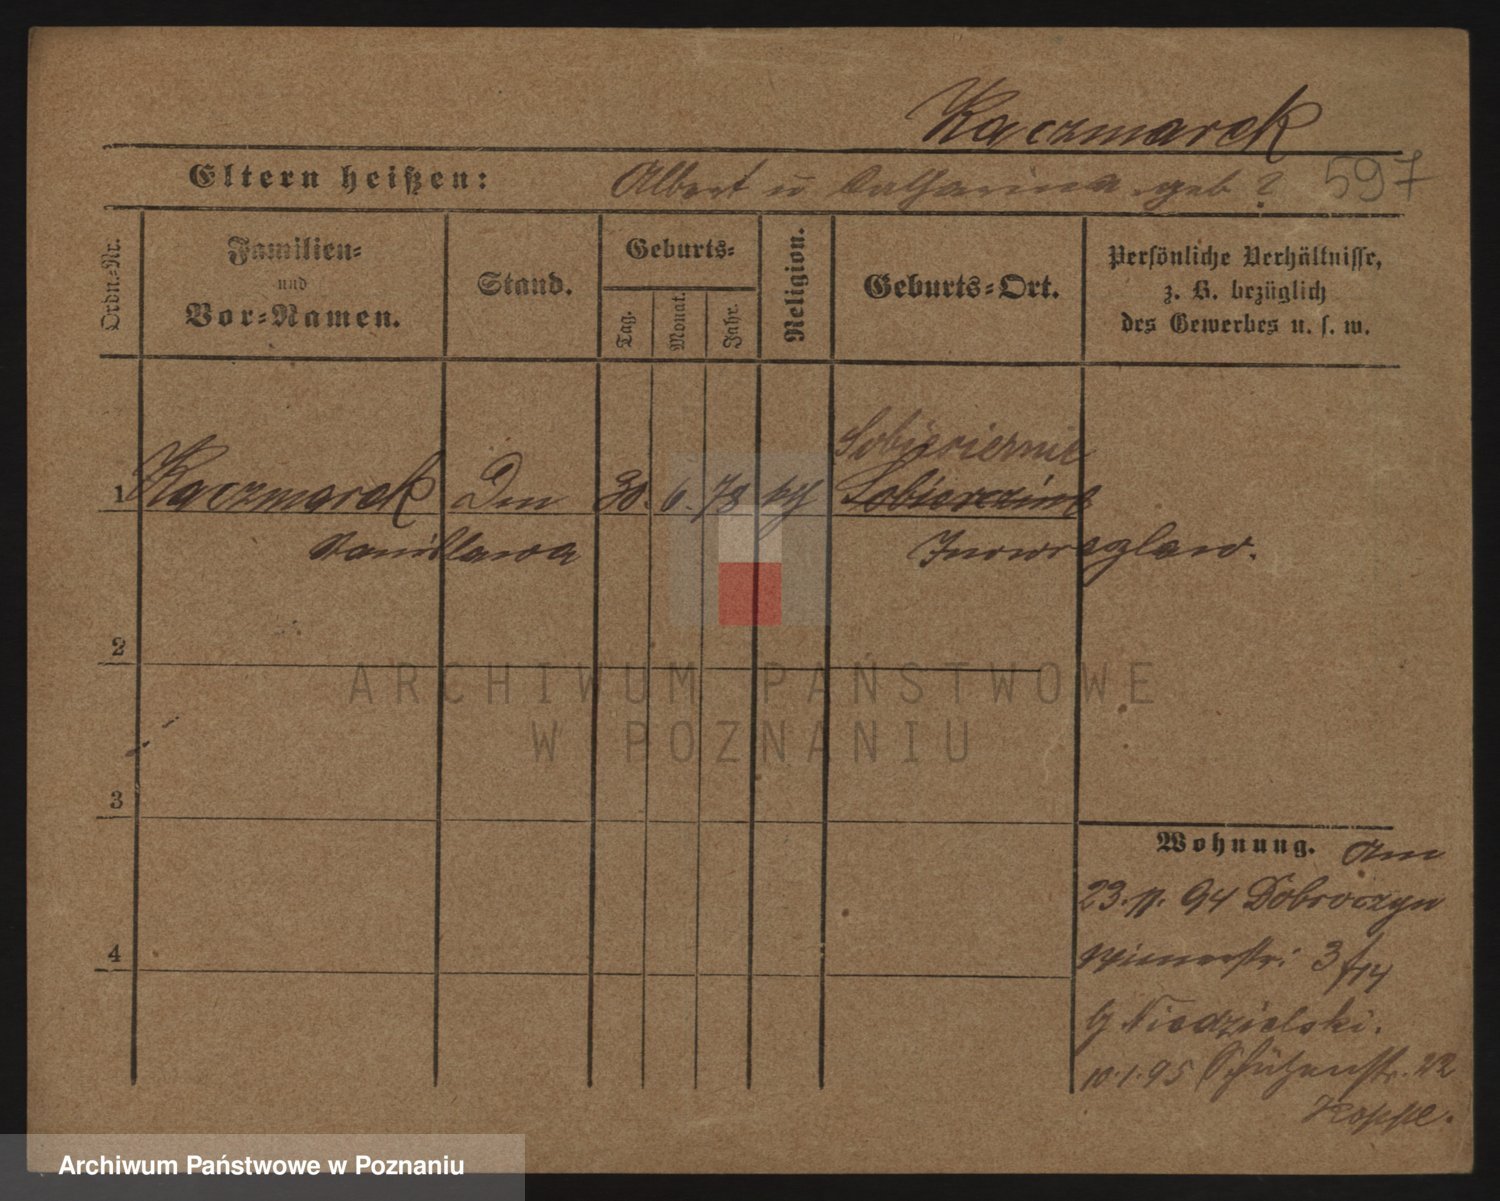 Kaczmarek
Eltern heißen: Albert u Catharina geb ? 597
Ordn.-Nr.
Familien-
und
Vor-Namen.
Stand.
Geburts-
Tag.
Monat.
Jahr.
Religion.
Geburts-Ort.
Persönliche Verhältnisse,
z. B. bezüglich
des Gewerbes u. s. w.
Sobiesiernie
1 Kaczmarek 30. 6. 78 kth
Stanislawa Inowrazlaw.
2
3
4
Wohnung. Am
23. 11. 94 Dobroczyn
3/14
b Niedzielski.
10.1.95 Schützenstr. 22
Hoppe.
ARCHIWUM PAŃSTWOWE
W POZNANIU
Archiwum Państwowe w Poznaniu